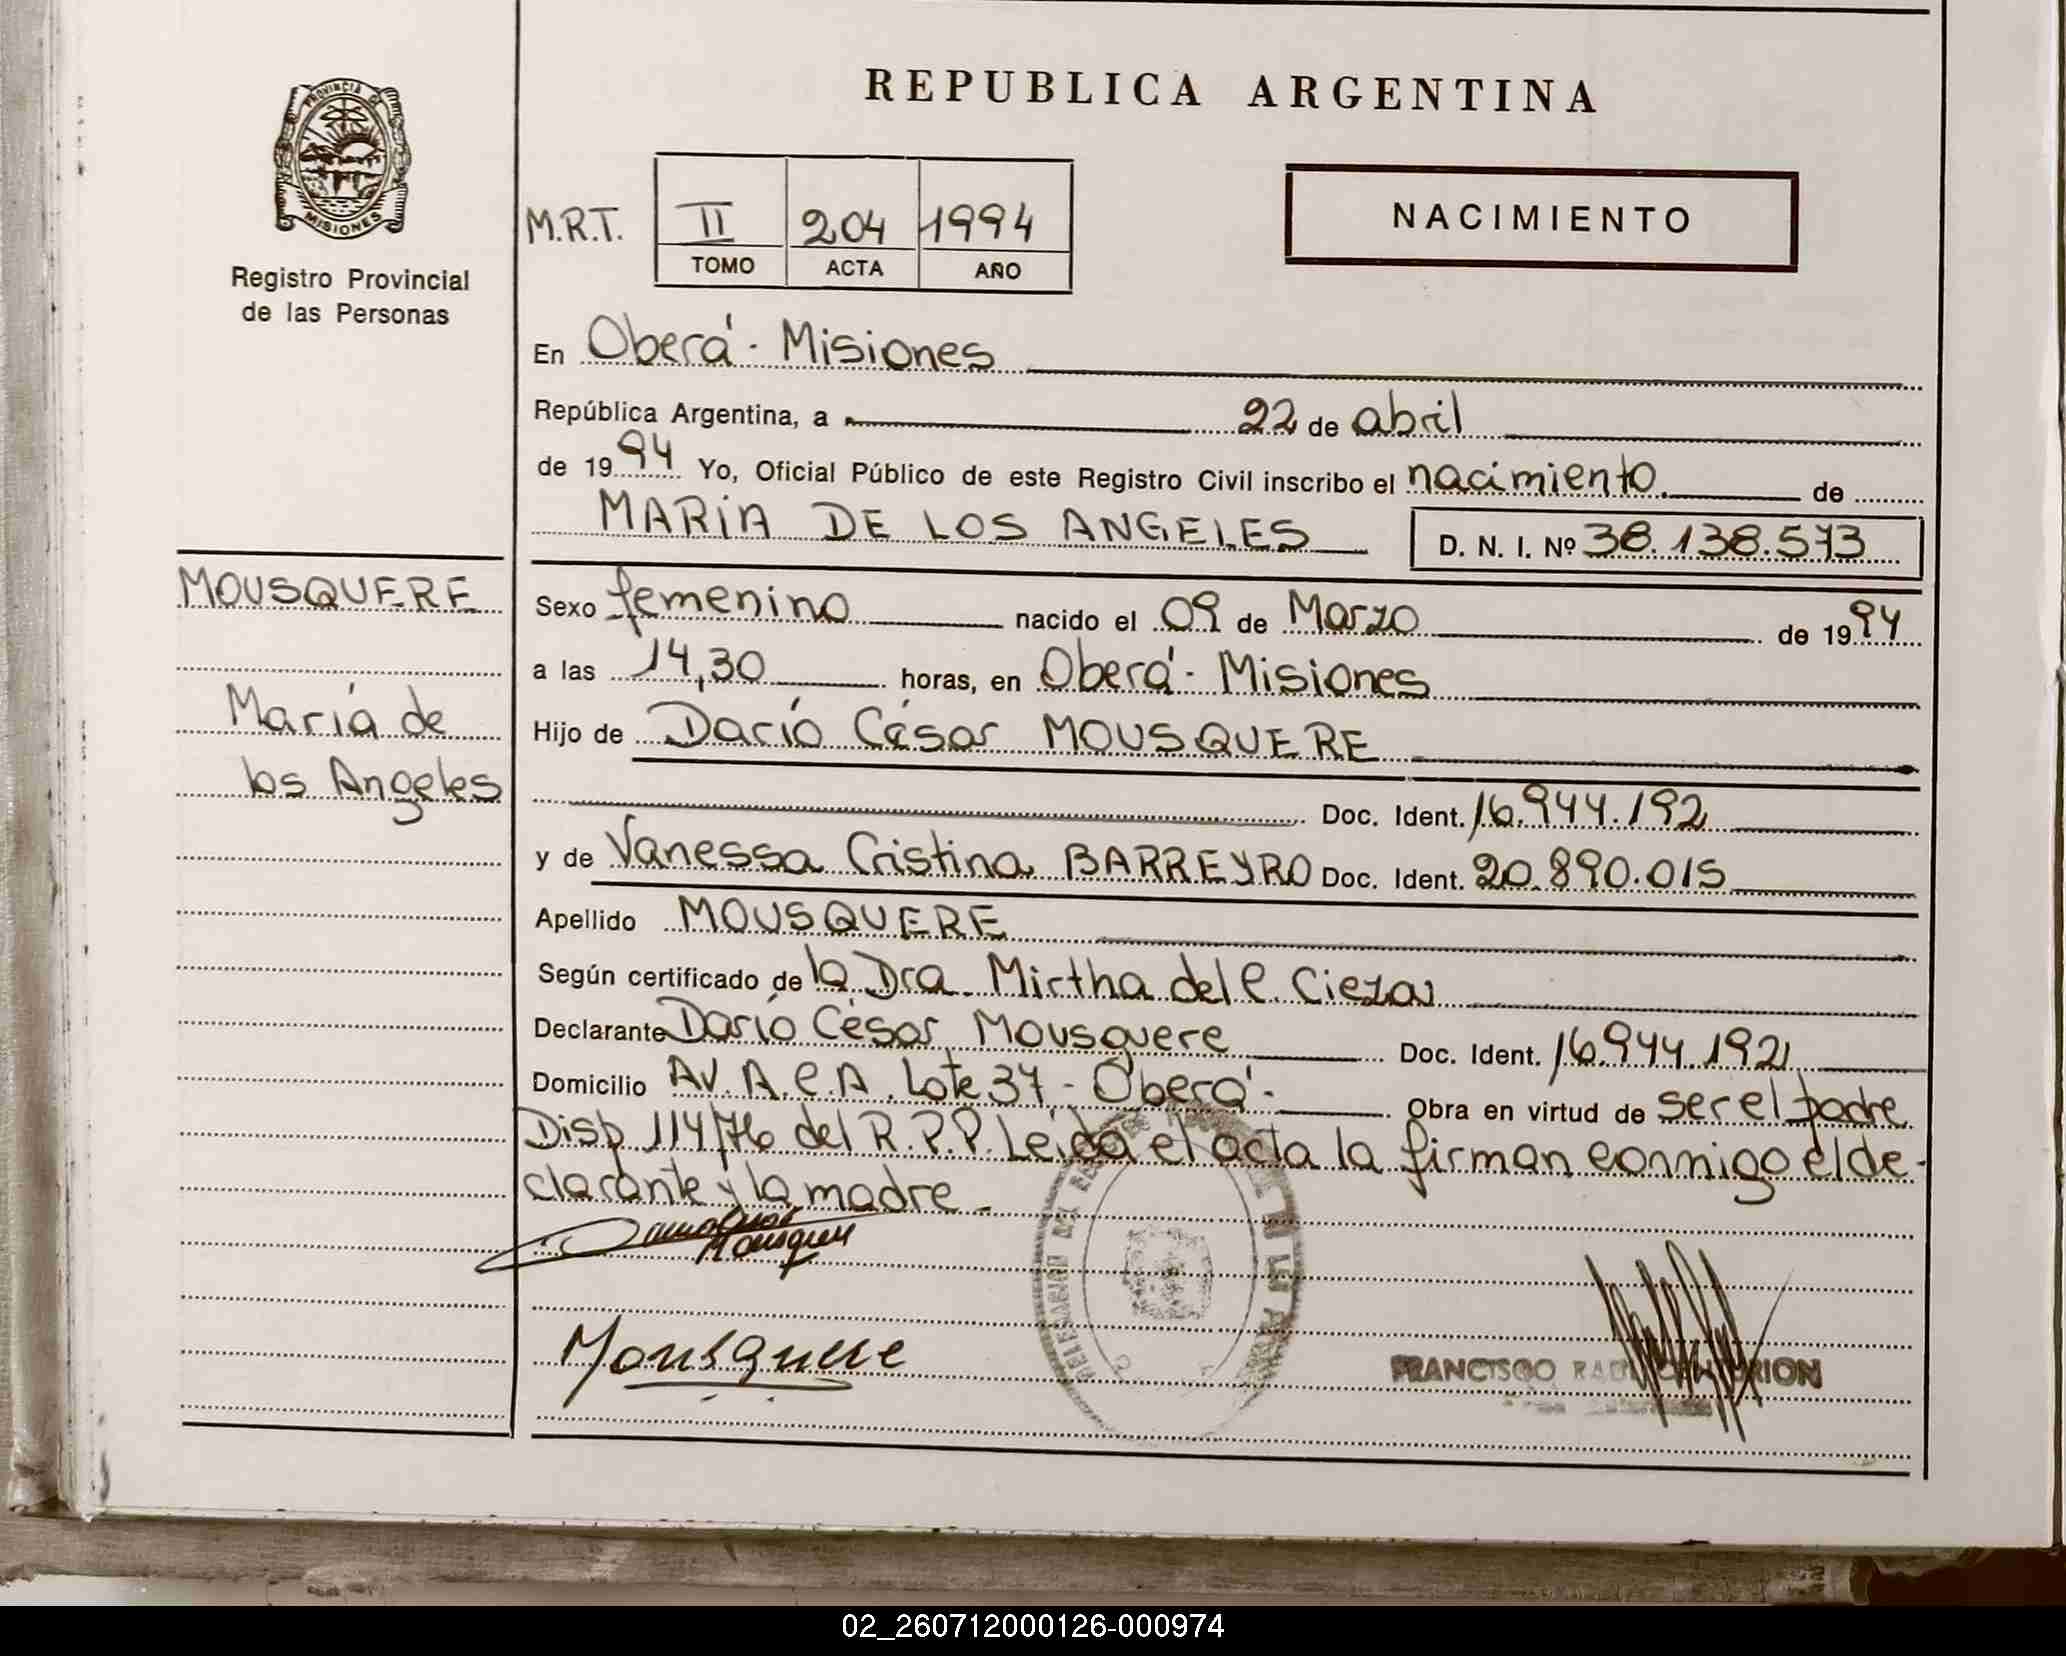 REPUBLICA ARGENTINA
PROVINCIA DE
MISIONES
Registro Provincial
de las Personas
M.R.T.
II 204 1994
TOMO ACTA AÑO
NACIMIENTO
En Oberá - Misiones
República Argentina, a 22 de abril
de 1994 Yo, Oficial Público de este Registro Civil inscribo el nacimiento de
MARIA DE LOS ANGELES D. N. I. Nº 38.138.573
MOUSQUERE
María de
los Angeles
Sexo femenino nacido el 09 de Marzo de 1994
a las 14,30 horas, en Oberá - Misiones
Hijo de Darío César MOUSQUERE
Doc. Ident. 16.944.192
y de Vanessa Cristina BARREYRO Doc. Ident. 20.890.015
Apellido MOUSQUERE
Según certificado de la Dra. Mirtha del C. Cieza
Declarante Darío César Mousquere Doc. Ident. 16.944.192
Domicilio Av. A.C.A. Lote 37 - Oberá - Obra en virtud de ser el padre
Disp 114/76 del R.P.P. Leída el acta la firman conmigo el de-
clarante y la madre -
Mousquere
Mousquere
FRANCISCO
02_260712000126-000974